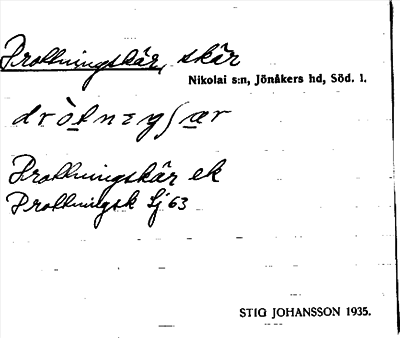 Drottningskär, skär
Nikolai s:n, Jönåkers hd, Söd. l.
Drottningskär ek
Drottningsk Sj 63
STIG JOHANSSON 1935.